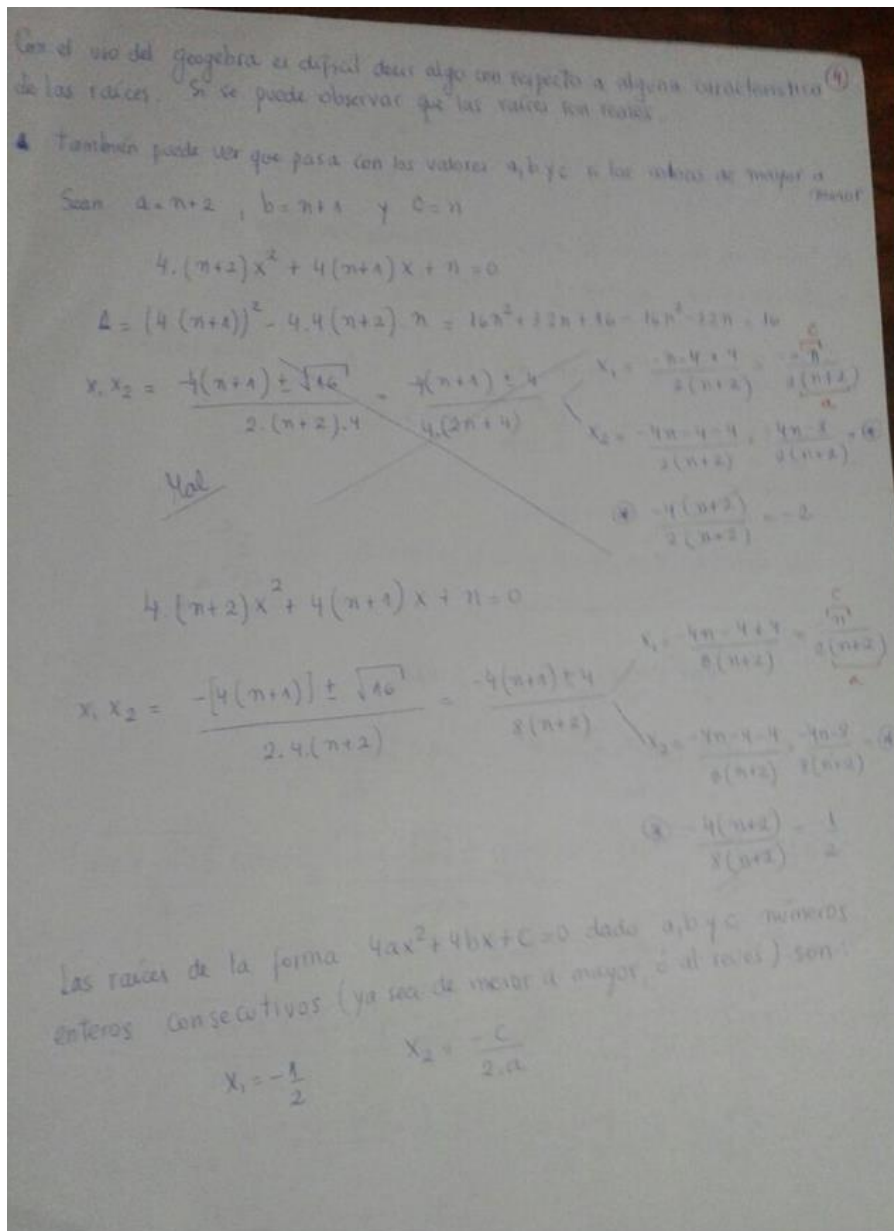 Con el uso del geogebra es difícil decir algo con respecto a alguna característica (4)
de las raíces. Si se puede observar que las raíces son reales.
También puede ver que pasa con los valores a, b y c si los de mayor a
menor
Sean a = n+2 , b = n+1 y C = n
4.(n+2)x² + 4(n+1)x + n = 0
Δ = (4(n+1))² - 4.4(n+2).n = 16n²+32n+16-16n²-32n = 16
x₁ x₂ = -4(n+1) ± √16 / 2.(n+2).4 = -4(n+1) ± 4 / 4.(2n+4)
x₁ = -n-4+4 / 2(n+2) = -n / 2(n+2)
c
a
x₂ = -4n-4-4 / 2(n+2) = -4n-8 / 2(n+2) = (*)
Mal
(*) -4(n+2) / 2(n+2) = -2
4.(n+2)x² + 4(n+1)x + n = 0
x₁ x₂ = -[4(n+1)] ± √16 / 2.4.(n+2) = -4(n+1) ± 4 / 8(n+2)
x₁ = -4n-4+4 / 8(n+2) = n / 2(n+2)
c
a
x₂ = -4n-4-4 / 8(n+2) = -4n-8 / 8(n+2) = (*)
(*) -4(n+2) / 8(n+2) = 1 / 2
Las raíces de la forma 4ax²+4bx+C=0 dado a, b y c números
enteros consecutivos (ya sea de menor a mayor, ó al revés) son:
x₁ = -1/2 x₂ = -c / 2.a